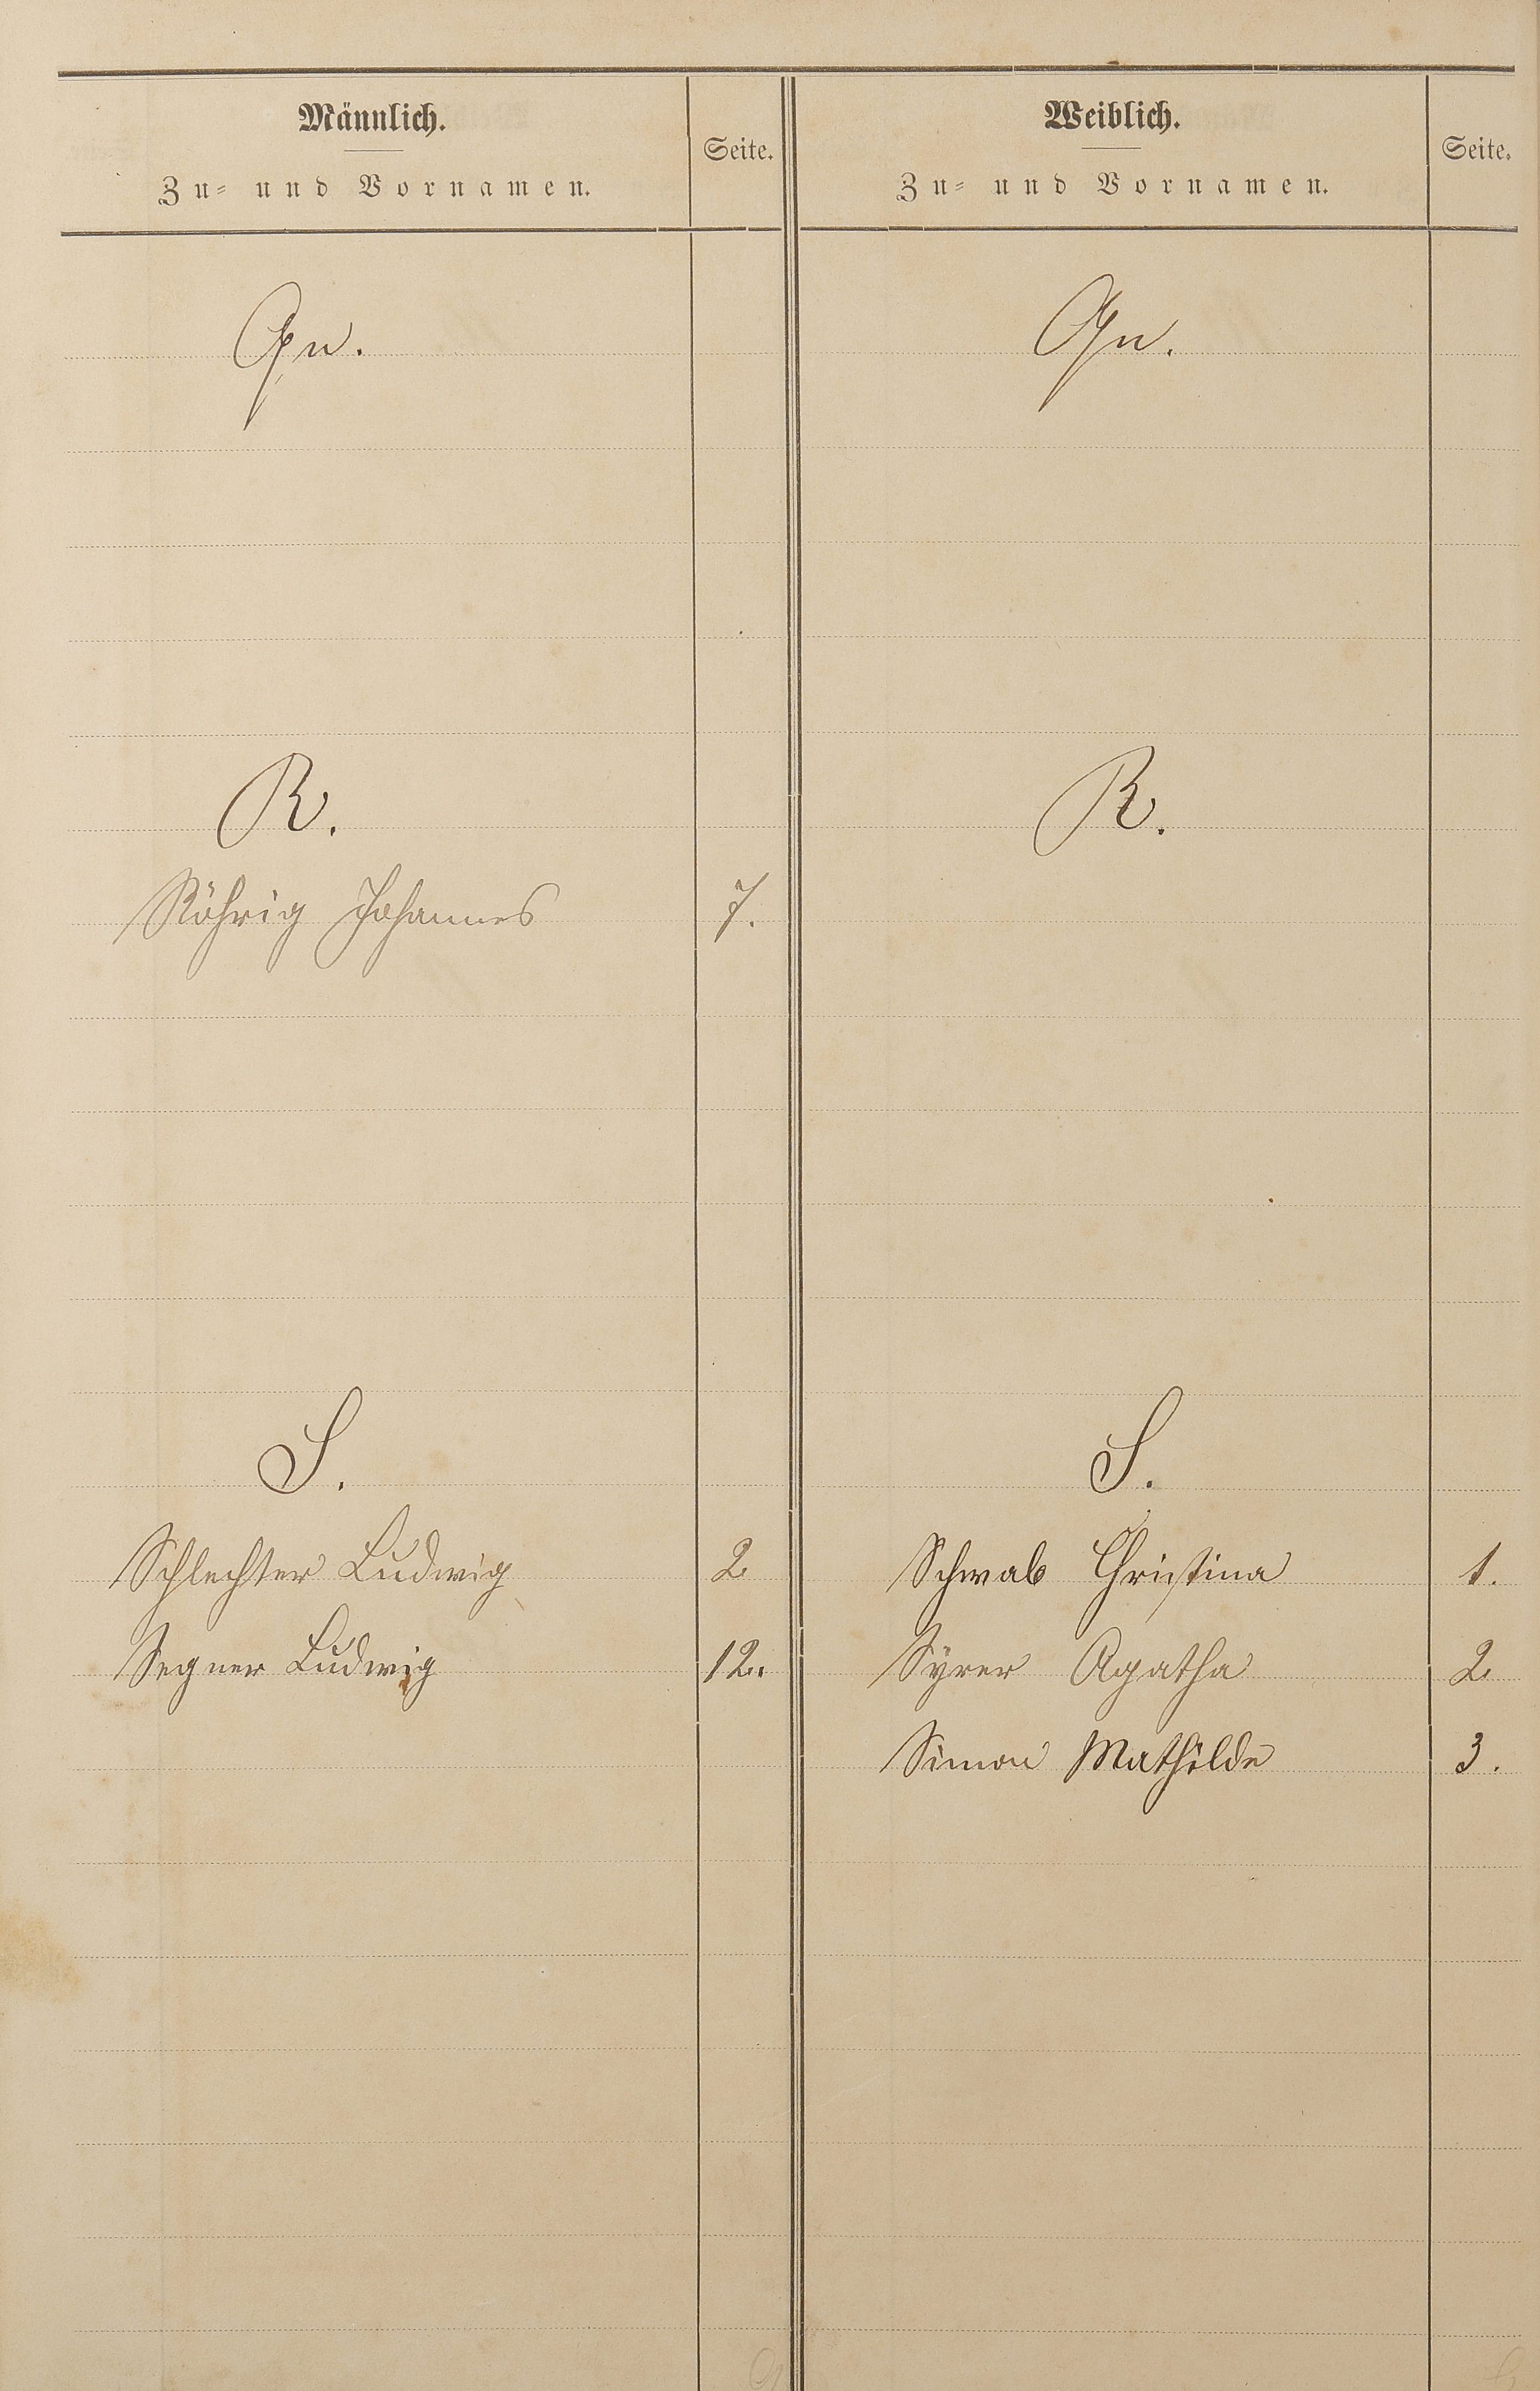 Männlich.
Zu- und Vornamen.
Seite.
Weiblich.
Zu- und Vornamen.
Seite.
Qu.
Qu.
R.
R.
Röhrig Johannes 7.
S.
S.
Schlechter Ludwig 2. Schwab Christina 1.
Segner Ludwig 12. Syrer Agatha 2.
Simon Mathilde 3.